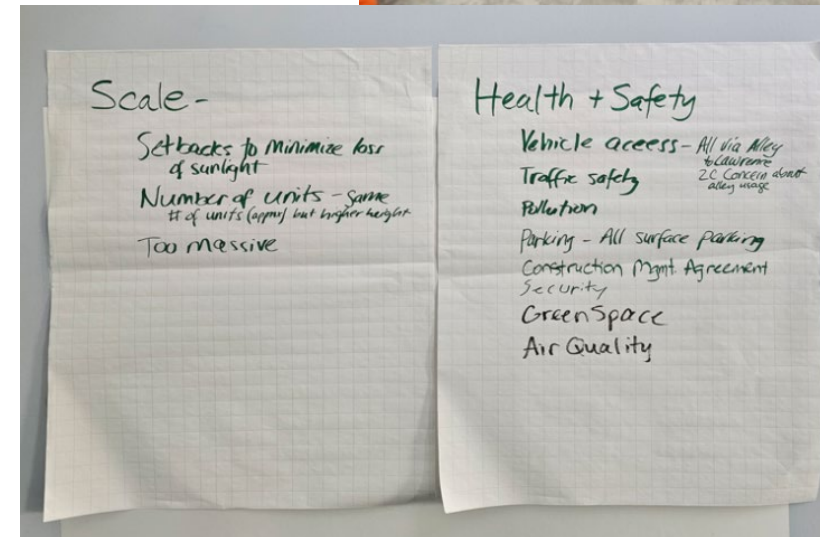 Scale -
Setbacks to minimize loss
of sunlight
Number of units - Same
# of units (approx) but higher height
Too massive
Health + Safety
Vehicle access - All via Alley
to Lawrence
2C Concern about
alley usage
Traffic safety
Pollution
Parking - All surface parking
Construction Mgmt. Agreement
Security
GreenSpace
Air Quality